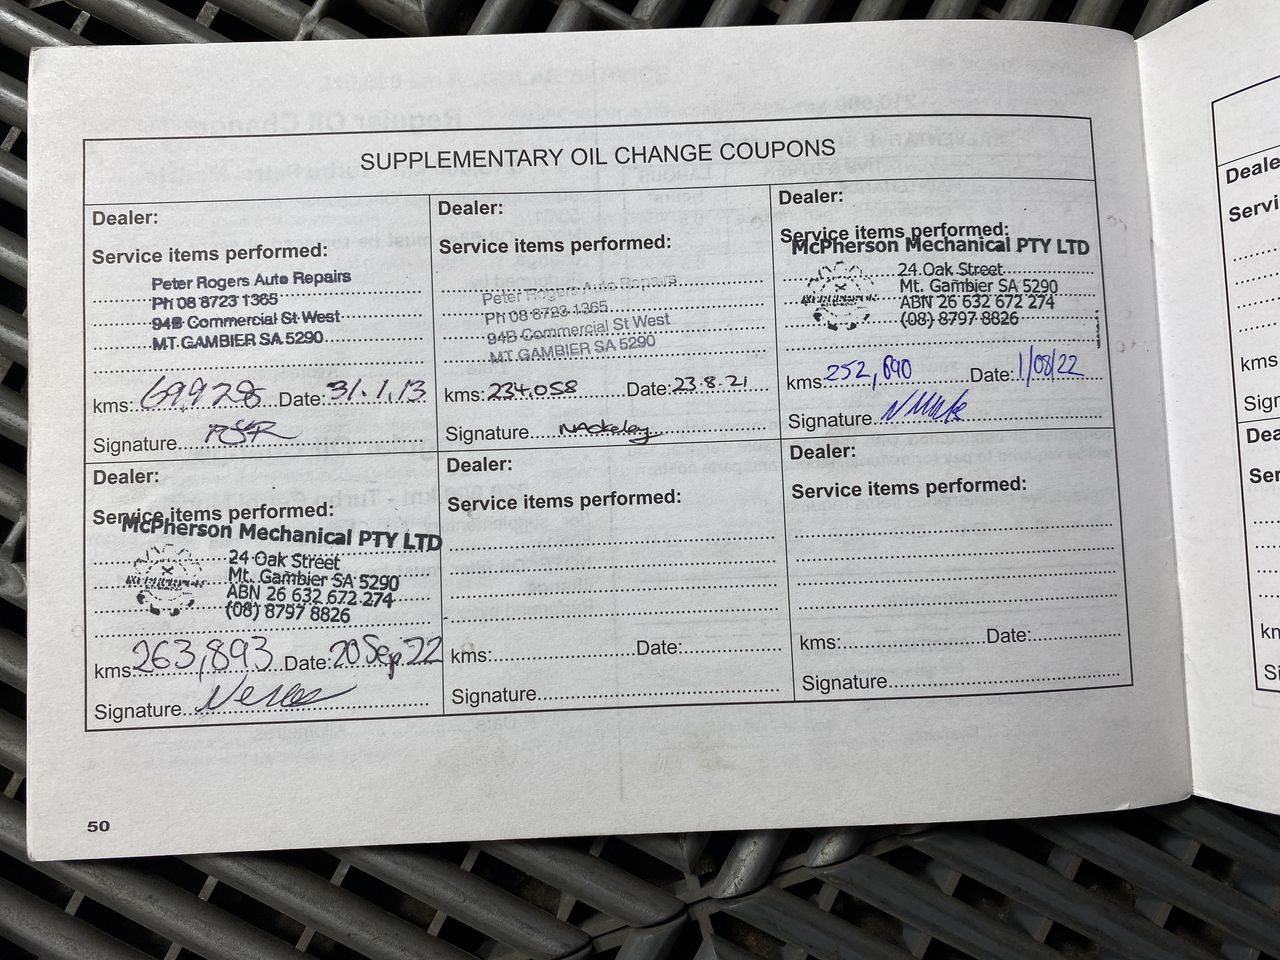 SUPPLEMENTARY OIL CHANGE COUPONS
Dealer:
Service items performed:
Peter Rogers Auto Repairs
Ph 08 8723 1365
94B Commercial St West
MT GAMBIER SA 5290
kms: 69,928 Date: 31.1.13
Signature
Dealer:
Service items performed:
Peter Rogers Auto Repairs
Ph 08 8723 1365
94B Commercial St West
MT GAMBIER SA 5290
kms: 234,058 Date: 23.8.21
Signature
Dealer:
Service items performed:
McPherson Mechanical PTY LTD
24 Oak Street
Mt. Gambier SA 5290
ABN 26 632 672 274
(08) 8797 8826
kms: 252,890 Date: 1/08/22
Signature
Dealer:
Service items performed:
McPherson Mechanical PTY LTD
24 Oak Street
Mt. Gambier SA 5290
ABN 26 632 672 274
(08) 8797 8826
kms: 263,893 Date: 20 Sep 22
Signature
Dealer:
Service items performed:
kms: Date:
Signature
Dealer:
Service items performed:
kms: Date:
Signature
50
Deale
Servi
kms
Sig
Dea
Se
km
Si